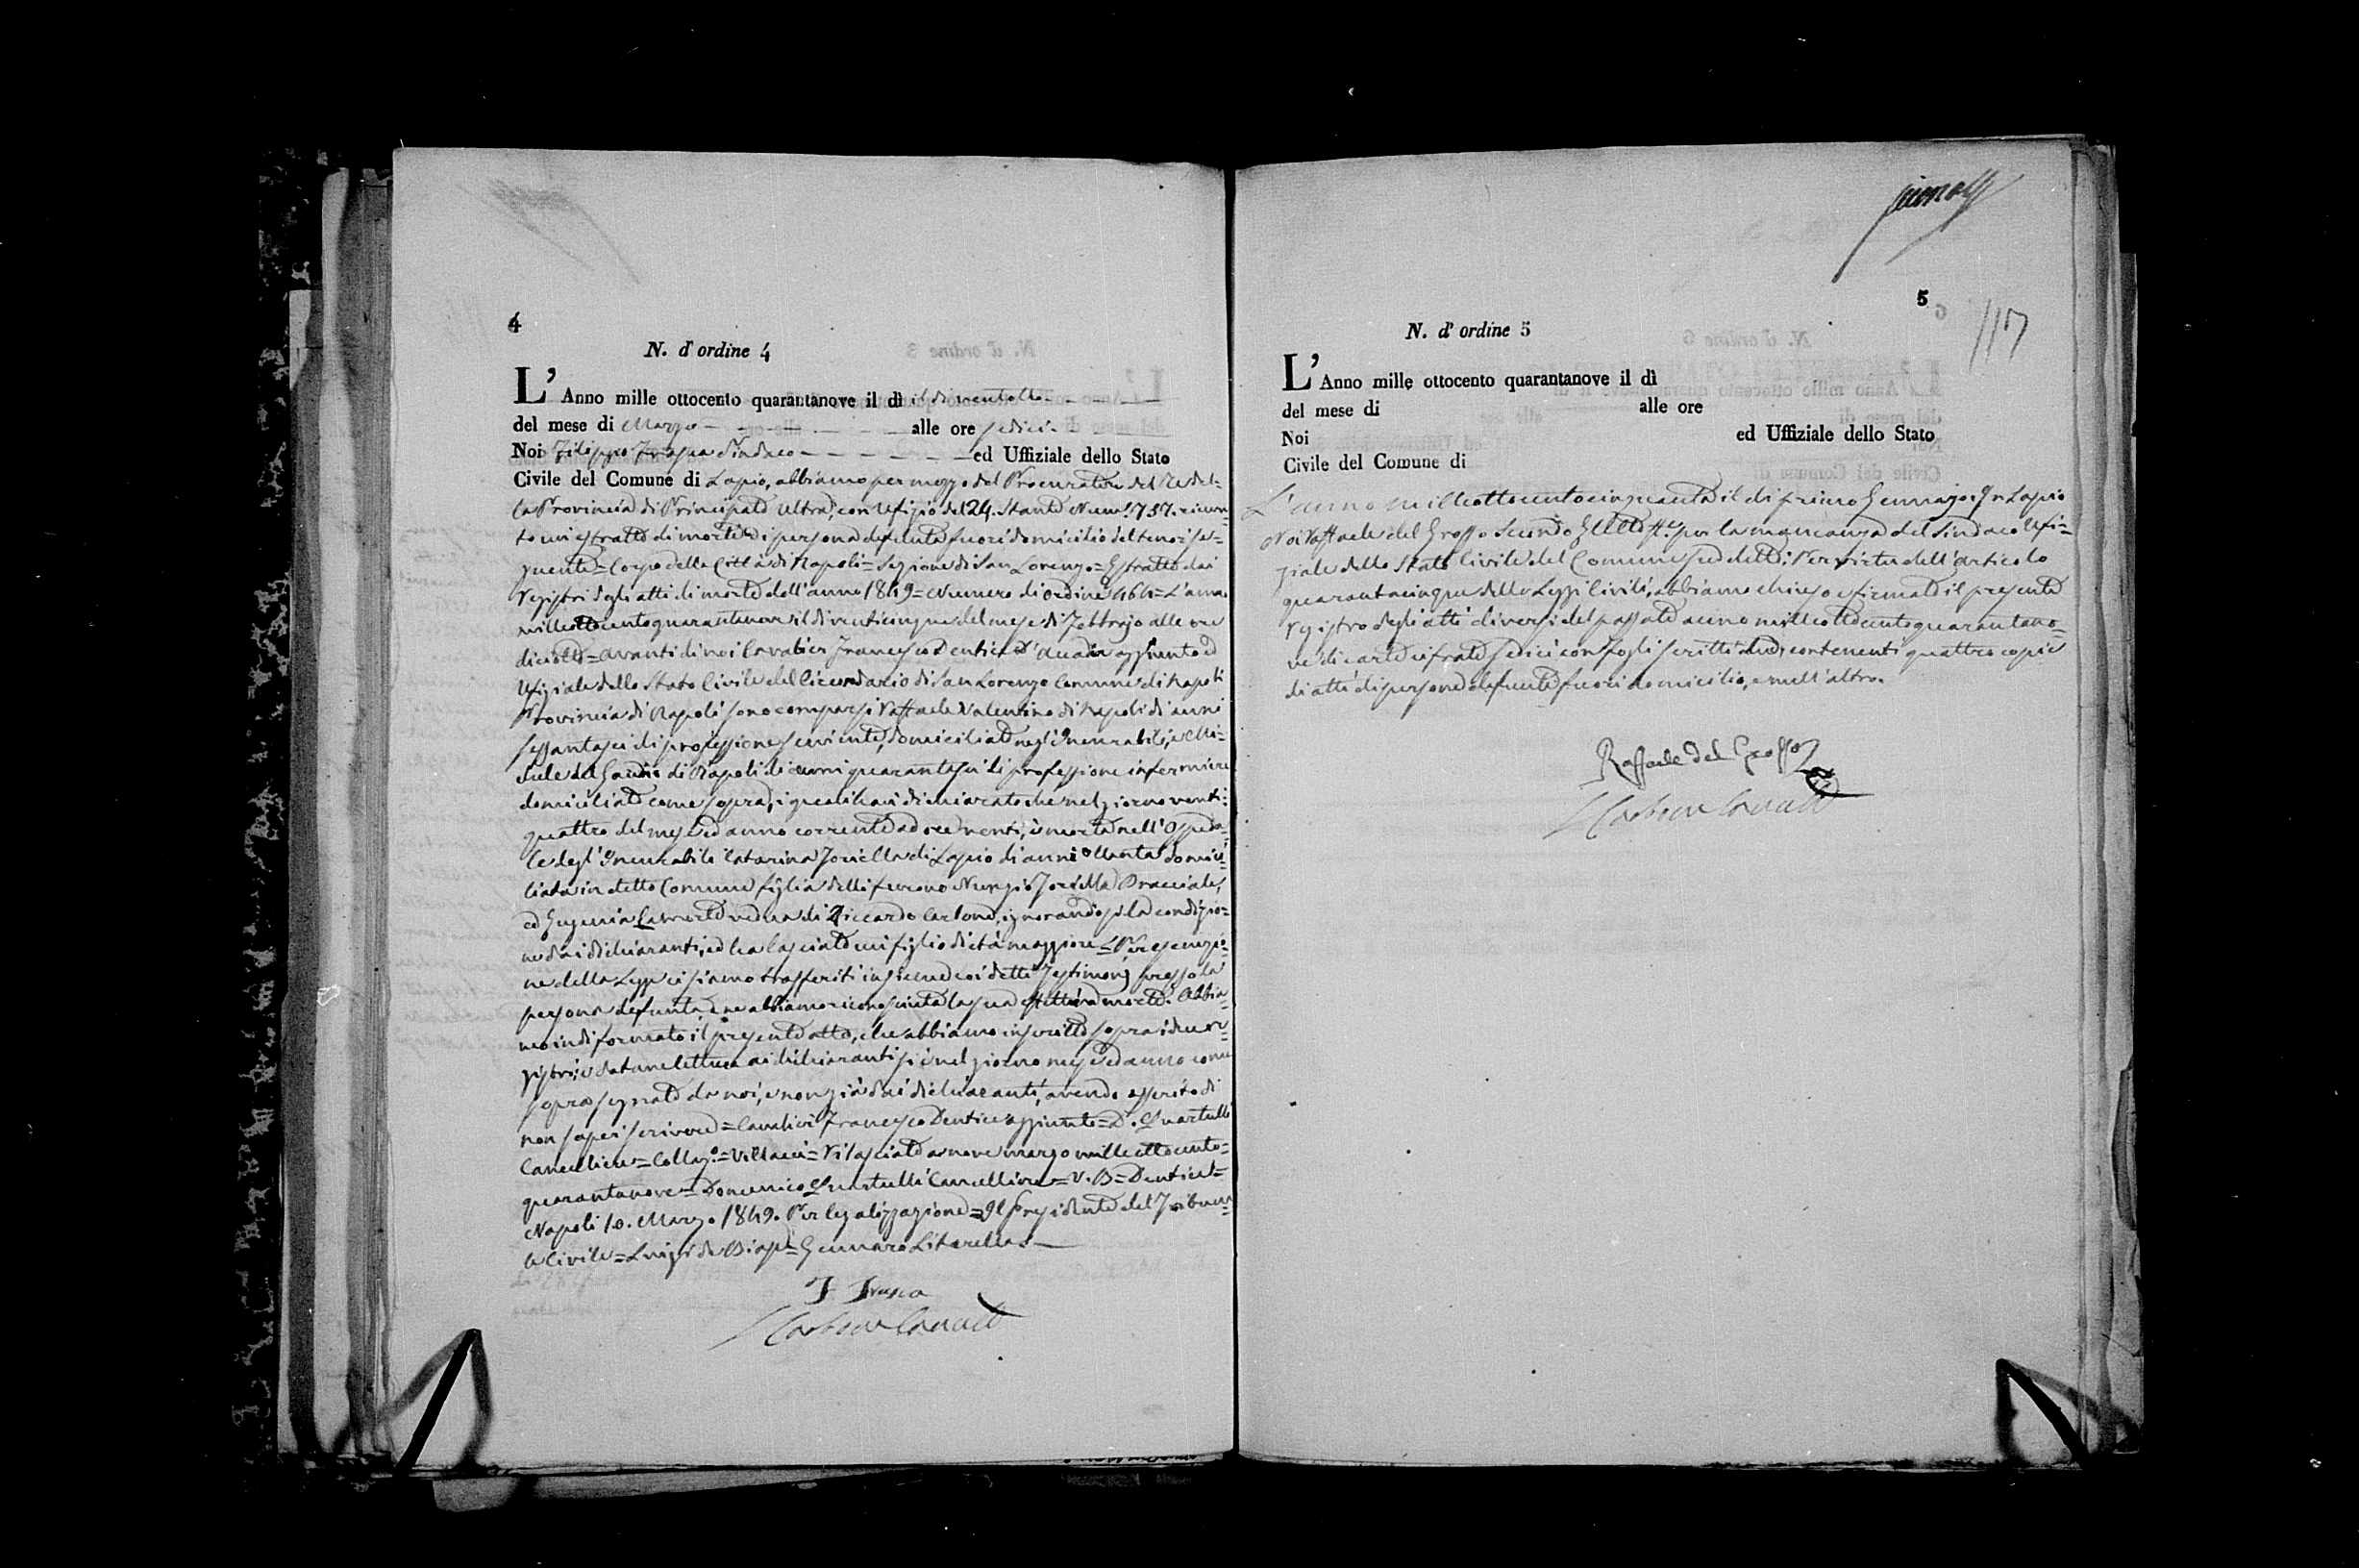 4
N. d'ordine 4
L'Anno mille ottocento quarantanove il dì il di ventotto
del mese di Marzo alle ore sedici
Noi Filippo Frasca Sindaco ed Uffiziale dello Stato
Civile del Comune di Lapio, abbiamo per mezzo del Procuratore del Re del-
la Provincia di Principato Ultra, con Ufizio del 24. stante Num.º 757. ricevu-
to un estratto di morte di persona defunta fuori domicilio del tenor se-
guente = Corpo della Città di Napoli = Sezione di San Lorenzo = Estratto dai
registri degli atti di morte dell'anno 1849 = Numero di ordine 464 = L'anno
milleottocentoquarantanove il di venticinque del mese di Febbrajo alle ore
diciotto = avanti di noi Cavalier Francesco Dentice d' aggiunto ed
Ufiziale dello Stato Civile del Circondario di San Lorenzo Comune di Napoli
Provincia di Napoli sono comparsi Raffaele Valentino di Napoli di anni
sessantasei di professione serviente, domiciliato negl'Incurabili, e Mi-
chele del Gaudio di Napoli di anni quarantasei di professione infermiere
domiciliato come sopra, i quali han dichiarato che nel giorno venti-
quattro del mese ed anno corrente ad ore venti, è morta nell'Ospeda-
le degl'Incurabili Catarina Joriella di Lapio di anni ottanta domici-
liata in detto Comune figlia delli furono Nunzio Joriella Bracciale,
ed Eugenia vedova di Riccardo Carbone, ignorandosi la condizio-
ne dai dichiaranti, ed ha lasciato un figlio di età maggiore = Per esecuzio-
ne della Legge ci siamo trasferiti insieme coi detti Testimonj presso la
persona defunta, e ne abbiamo riconosciuta la sua effettiva morte. Abbia-
mo indi formato il presente atto, che abbiamo inscritto sopra i due re-
gistri, e datane lettura ai dichiaranti si è nel giorno mese ed anno come
sopra segnato da noi, e non già dai dichiaranti, avendo asserito di
non saper scrivere = Cavalier Francesco Dentice aggiunto = D. Quartulli
Cancelliere = Collaz.º = Villacci = Rilasciato a nove marzo milleottocento-
quarantanove = Domenico Quartulli Cancelliere = V. B = Dentice =
Napoli 10. Marzo 1849. Per legalizzazione = Il Presidente del Tribuna-
le Civile = Luigi de = Gennaro Litarella.
F Frasca
5
117
N. d'ordine 5
L'Anno mille ottocento quarantanove il dì
del mese di alle ore
Noi ed Uffiziale dello Stato
Civile del Comune di
L'anno milleottocentocinquanta il di primo Gennajo. In Lapio
Noi Raffaele del Grosso Secondo Eletto ff. per la mancanza del Sindaco Ufi-
ziale dello Stato Civile del Comune suddetto. Per virtù dell'articolo
quarantacinque delle Leggi Civili, abbiamo chiuso e firmato il presente
registro degli atti diversi del passato anno milleottocentoquarantano-
ve di carte cifrate sedici con fogli scritti due, contenenti quattro copie
di atti di persone defunte fuori domicilio, e null'altro.
Raffaele del Grosso